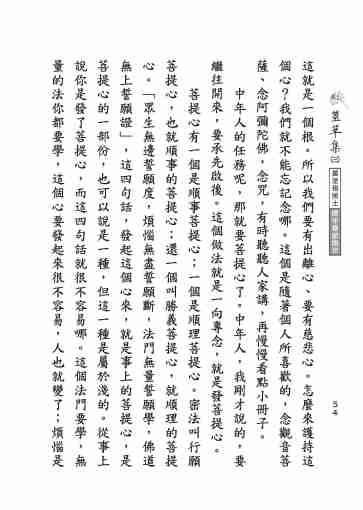 蓳草集㈡
54
這就是一個根。所以我們要有出離心、要有慈悲心。怎麼來護持這
個心？我們就不能忘記念哪。這個是隨著個人所喜歡的，念觀音菩
薩、念阿彌陀佛，念咒，有時聽聽人家講，再慢慢看點小冊子。
中年人的任務呢，那就要菩提心了。中年人，我剛才說的，要
繼往開來，要承先啟後。這個做法就是一向專念，就是發菩提心。
菩提心有一個是順事菩提心；一個是順理菩提心。密法叫行願
菩提心，也就順事的菩提心；還一個叫勝義菩提心，就順理的菩提
心。「眾生無邊誓願度，煩惱無盡誓願斷，法門無量誓願學，佛道
無上誓願證」，這四句話，發起這個心來，就是事上的菩提心，是
菩提心的一部份，也可以說是一種，但這一種是屬於淺的。從事上
說你是發了菩提心，而這四句話就很不容易哪。這個法門要學，無
量的法你都要學，這個心要發起來很不容易，人也就變了；煩惱是